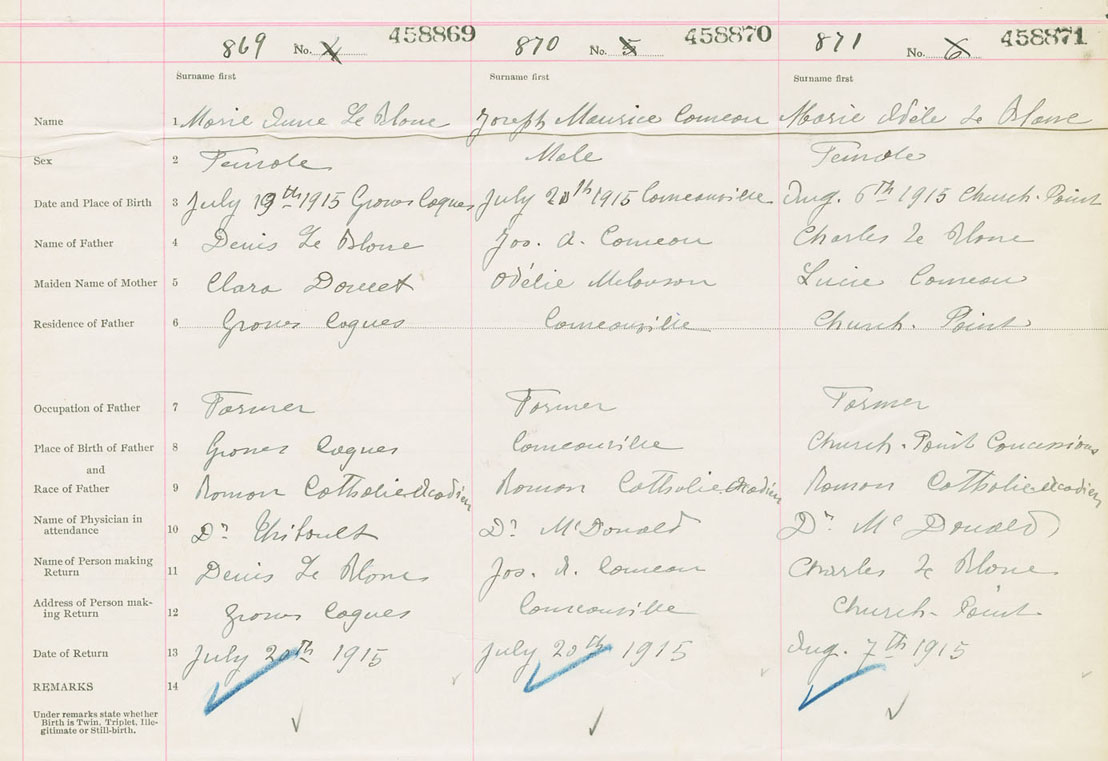 869 No. 4 458869 870 No. 5 458870 871 No. 6 458871
Surname first Surname first Surname first
Name 1 Marie Anne Le Blanc Joseph Maurice Comeau Marie Adèle Le Blanc
Sex 2 Female Male Female
Date and Place of Birth 3 July 19th 1915 Grosses Coques July 20th 1915 Comeauville Aug. 6th 1915 Church-Point
Name of Father 4 Denis Le Blanc Jos. A. Comeau Charles Le Blanc
Maiden Name of Mother 5 Clara Doucet Odélie Melanson Lucie Comeau
Residence of Father 6 Grosses Coques Comeauville Church-Point
Occupation of Father 7 Farmer Farmer Farmer
Place of Birth of Father 8 Grosses Coques Comeauville Church-Point Concessions
and
Race of Father 9 Roman Catholic Acadien Roman Catholic Acadien Roman Catholic Acadien
Name of Physician in
attendance 10 Dr. Thibault Dr. McDonald Dr. McDonald
Name of Person making
Return 11 Denis Le Blanc Jos. A. Comeau Charles Le Blanc
Address of Person mak-
ing Return 12 Grosses Coques Comeauville Church-Point
Date of Return 13 July 20th 1915 July 20th 1915 Aug. 7th 1915
REMARKS 14
Under remarks state whether
Birth is Twin, Triplet, Ille-
gitimate or Still-birth.